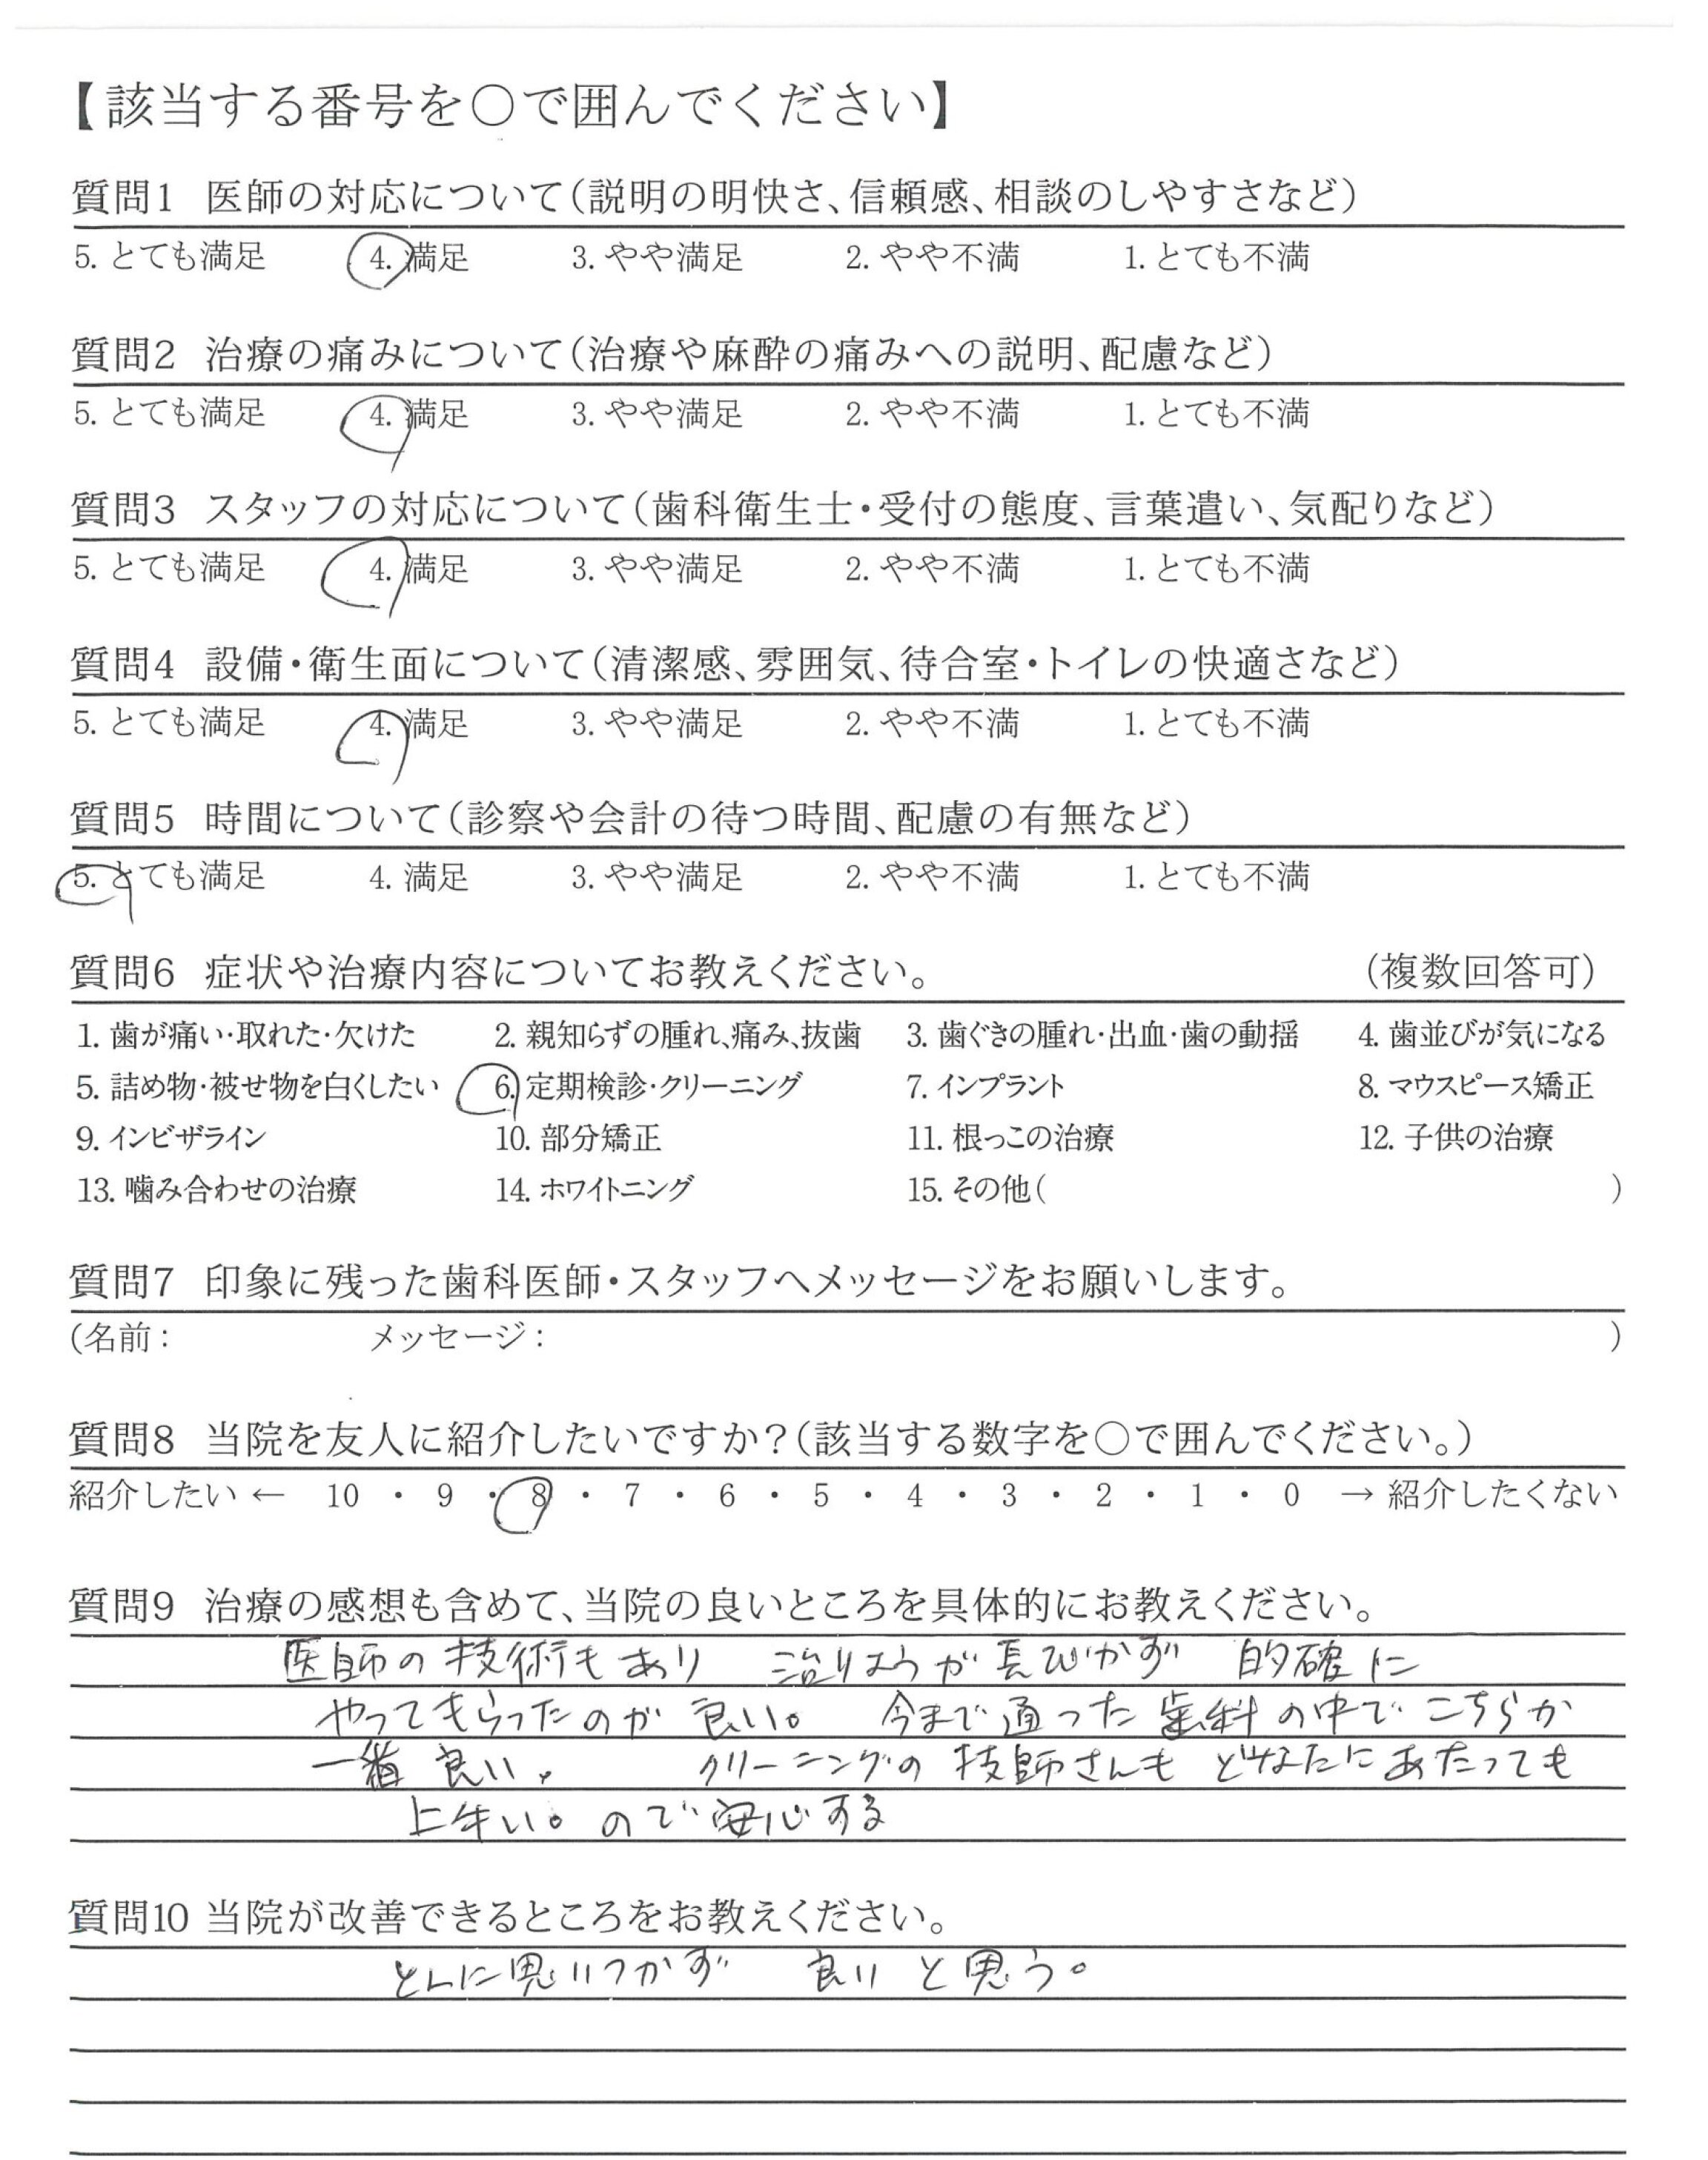 【該当する番号を〇で囲んでください】
質問1 医師の対応について(説明の明快さ、信頼感、相談のしやすさなど)
5. とても満足 4. 満足 3. やや満足 2. やや不満 1. とても不満
質問2 治療の痛みについて(治療や麻酔の痛みへの説明、配慮など)
5. とても満足 4. 満足 3. やや満足 2. やや不満 1. とても不満
質問3 スタッフの対応について(歯科衛生士・受付の態度、言葉遣い、気配りなど)
5. とても満足 4. 満足 3. やや満足 2. やや不満 1. とても不満
質問4 設備・衛生面について(清潔感、雰囲気、待合室・トイレの快適さなど)
5. とても満足 4. 満足 3. やや満足 2. やや不満 1. とても不満
質問5 時間について(診察や会計の待つ時間、配慮の有無など)
5. とても満足 4. 満足 3. やや満足 2. やや不満 1. とても不満
質問6 症状や治療内容についてお教えください。 (複数回答可)
1. 歯が痛い・取れた・欠けた 2. 親知らずの腫れ、痛み、抜歯 3. 歯ぐきの腫れ・出血・歯の動揺 4. 歯並びが気になる
5. 詰め物・被せ物を白くしたい 6. 定期検診・クリーニング 7. インプラント 8. マウスピース矯正
9. インビザライン 10. 部分矯正 11. 根っこの治療 12. 子供の治療
13. 噛み合わせの治療 14. ホワイトニング 15. その他( )
質問7 印象に残った歯科医師・スタッフへメッセージをお願いします。
(名前: メッセージ: )
質問8 当院を友人に紹介したいですか?(該当する数字を〇で囲んでください。)
紹介したい ← 10 ・ 9 ・ 8 ・ 7 ・ 6 ・ 5 ・ 4 ・ 3 ・ 2 ・ 1 ・ 0 → 紹介したくない
質問9 治療の感想も含めて、当院の良いところを具体的にお教えください。
医師の技術もあり 治りようが長びかず 的確に
やってもらったのが良い。 今まで通った歯科の中でこちらが
一番良い。 クリーニングの技師さんもどなたにあたっても
上手い。ので安心する
質問10 当院が改善できるところをお教えください。
とくに思いつかず 良いと思う。